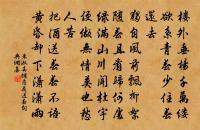 樓外垂楊千萬縷
欲繫青春少住春
還去
猶自風前飄柳絮
隨春且看歸何處
綠滿山川聞杜宇
便做無情莫也愁
人苦
把酒送春春不語
黃昏卻下瀟瀟雨
朱淑真蝶戀花送春句